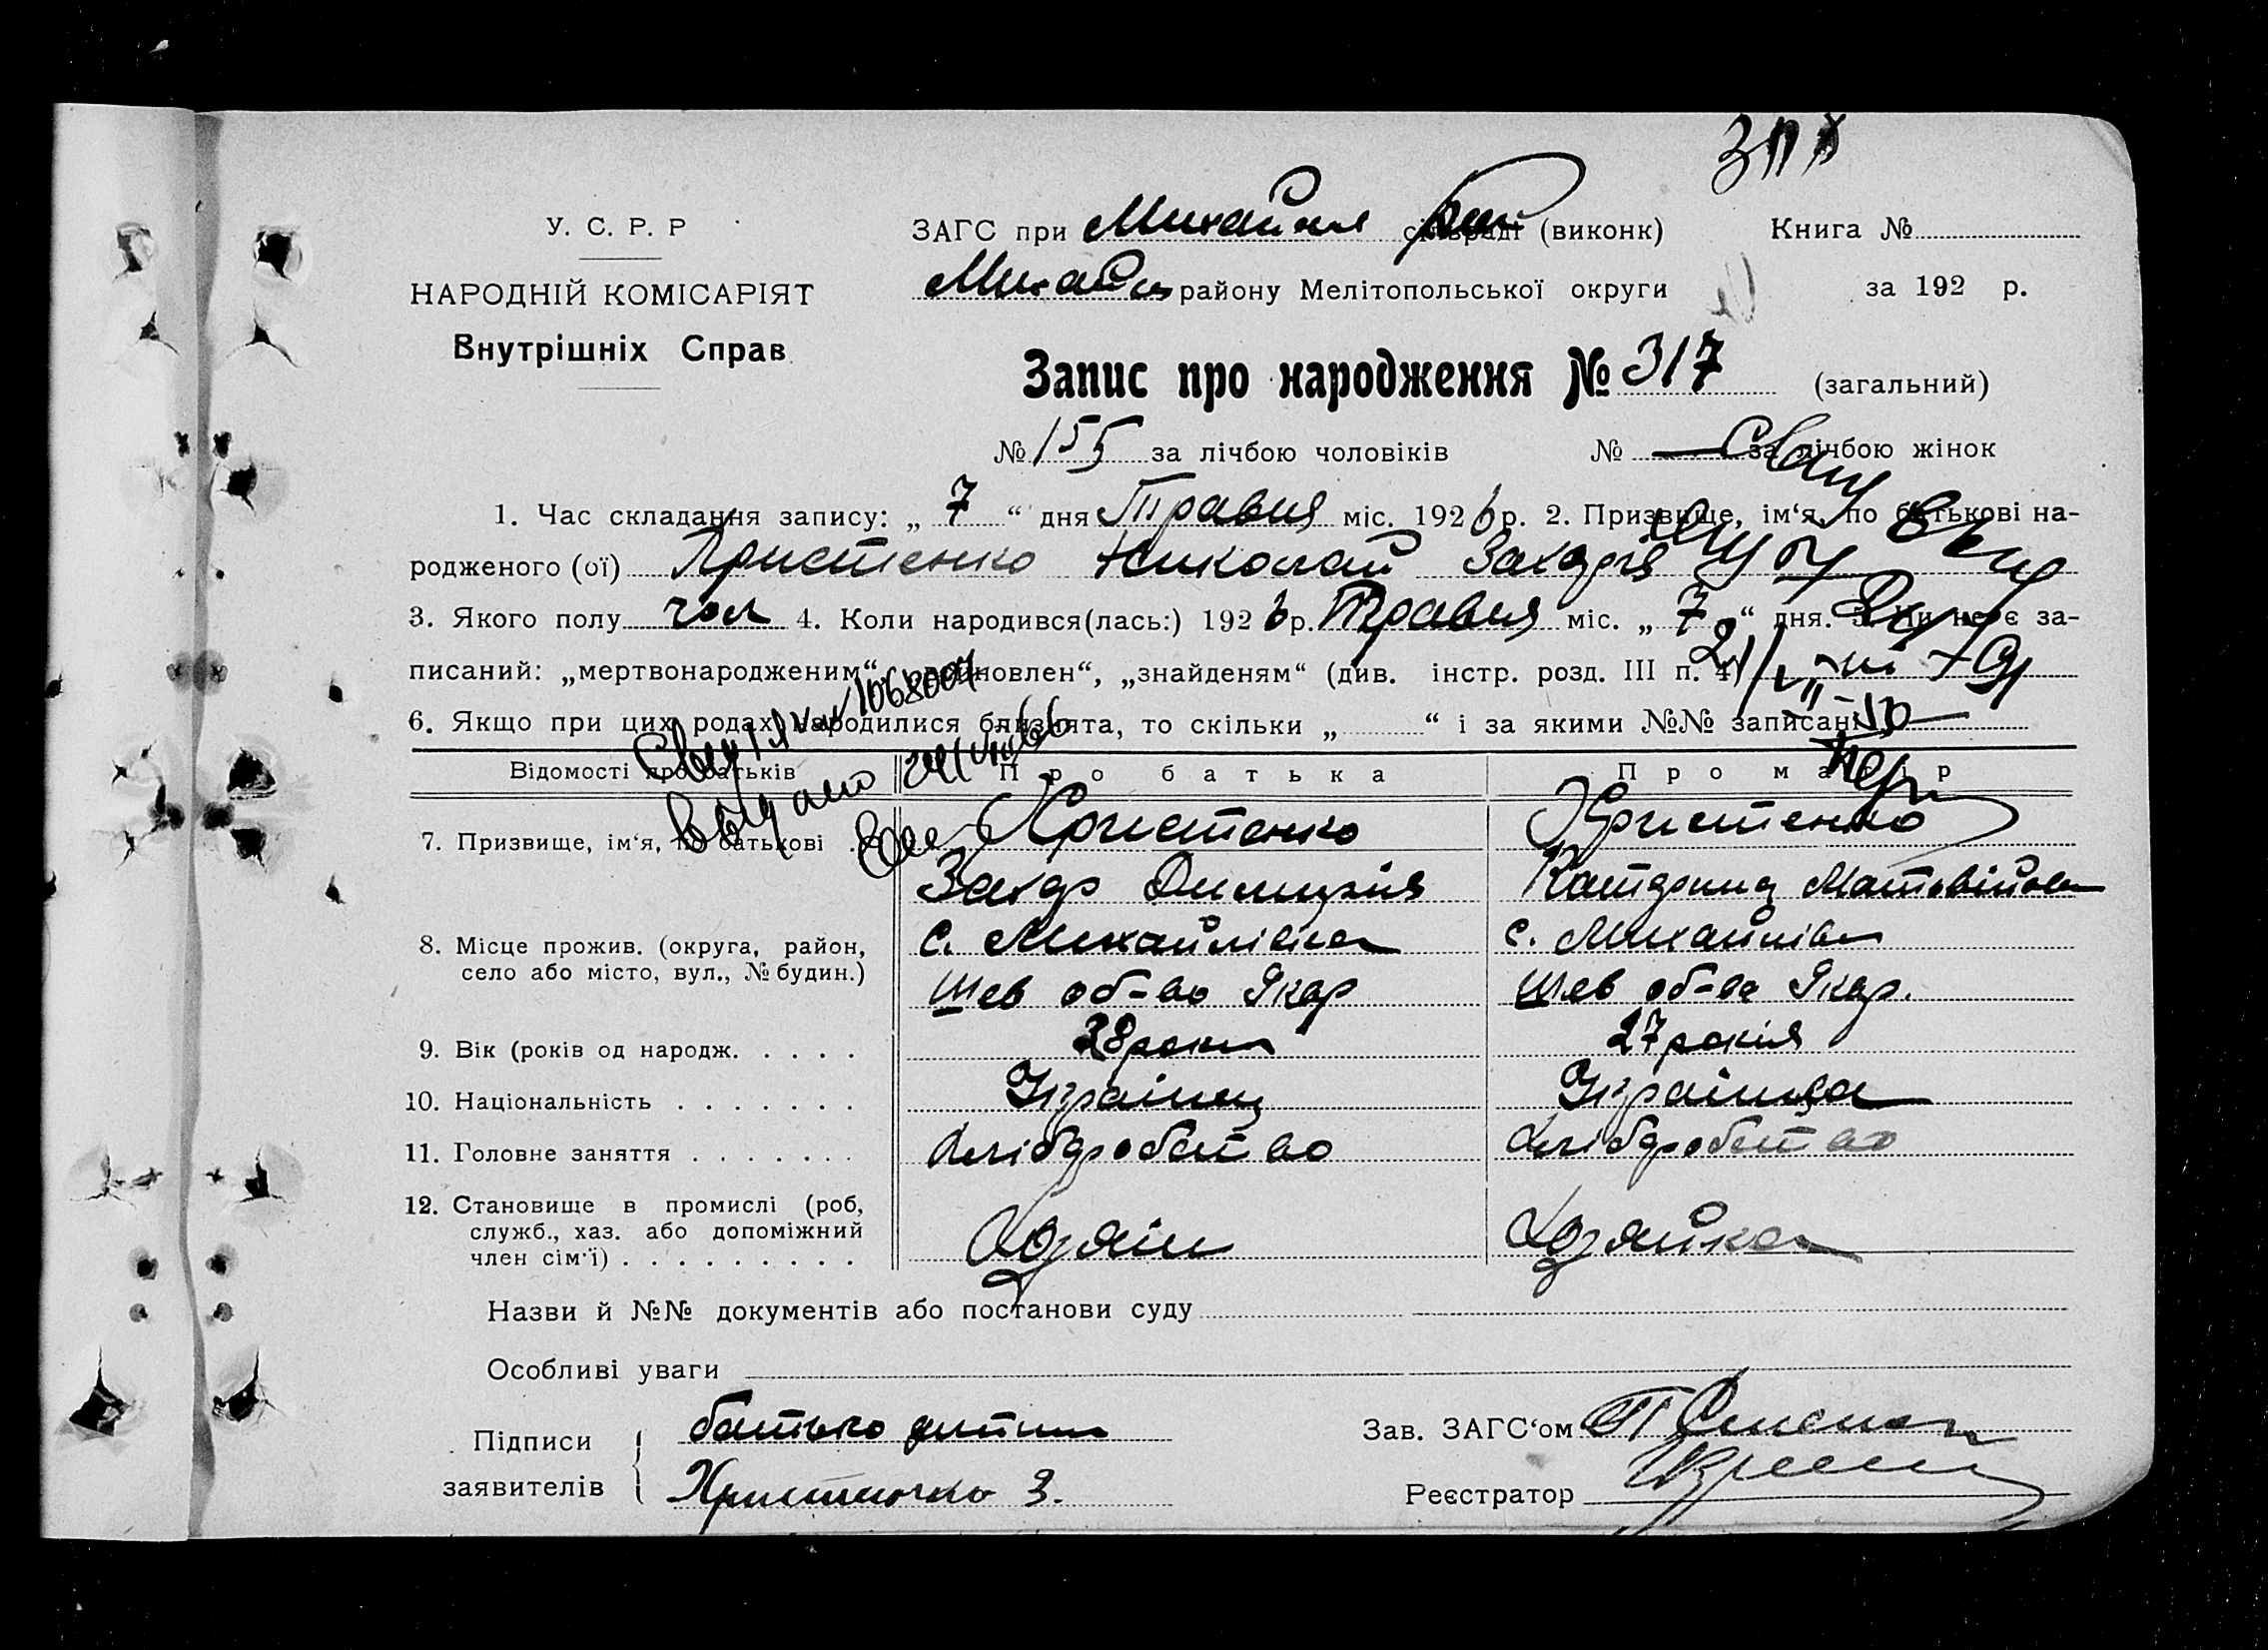 У. С. Р. Р
НАРОДНІЙ КОМІСАРІЯТ
Внутрішніх Справ
ЗАГС при Михайлів сільраді (виконк) Книга №
Михайлів району Мелітопольської округи за 192 р.
Запис про народження № 317 (загальний)
№ 155 за лічбою чоловіків № — за лічбою жінок
1. Час складання запису: „ 7 “ дня Травня міс. 1926 р. 2. Призвище, ім‘я, по батькові на-
родженого (ої) Христенко Николай Захарів
3. Якого полу чол 4. Коли народився(лась:) 1926 р. Травня міс. „ 7 “ дня. 5. Чи не є за-
писаний: „мертвонародженим“, „підкиновлен“, „знайденям“ (див. інстр. розд. III п. 4)
6. Якщо при цих родах народилися близнята, то скільки „ “ і за якими №№ записані
Відомості про батьків Про батька Про матір
7. Призвище, ім‘я, по батькові Христенко Христенко
Захар Дмитрів Катерина Матвійовна
8. Місце прожив. (округа, район, с. Михайлівка с. Михайлівка
село або місто, вул., № будин.) Шев об-во Шев об-во
9. Вік (років од народж. 28 роки 27 років
10. Національність Українец Українка
11. Головне заняття Хліборобство Хліборобство
12. Становище в промислі (роб,
служб., хаз. або допоміжний
член сім‘ї) Хазяін Хазяйка
Назви й №№ документів або постанови суду
Особливі уваги
Підписи батько дитини Зав. ЗАГС‘ом
заявителів Христенко З. Реєстратор